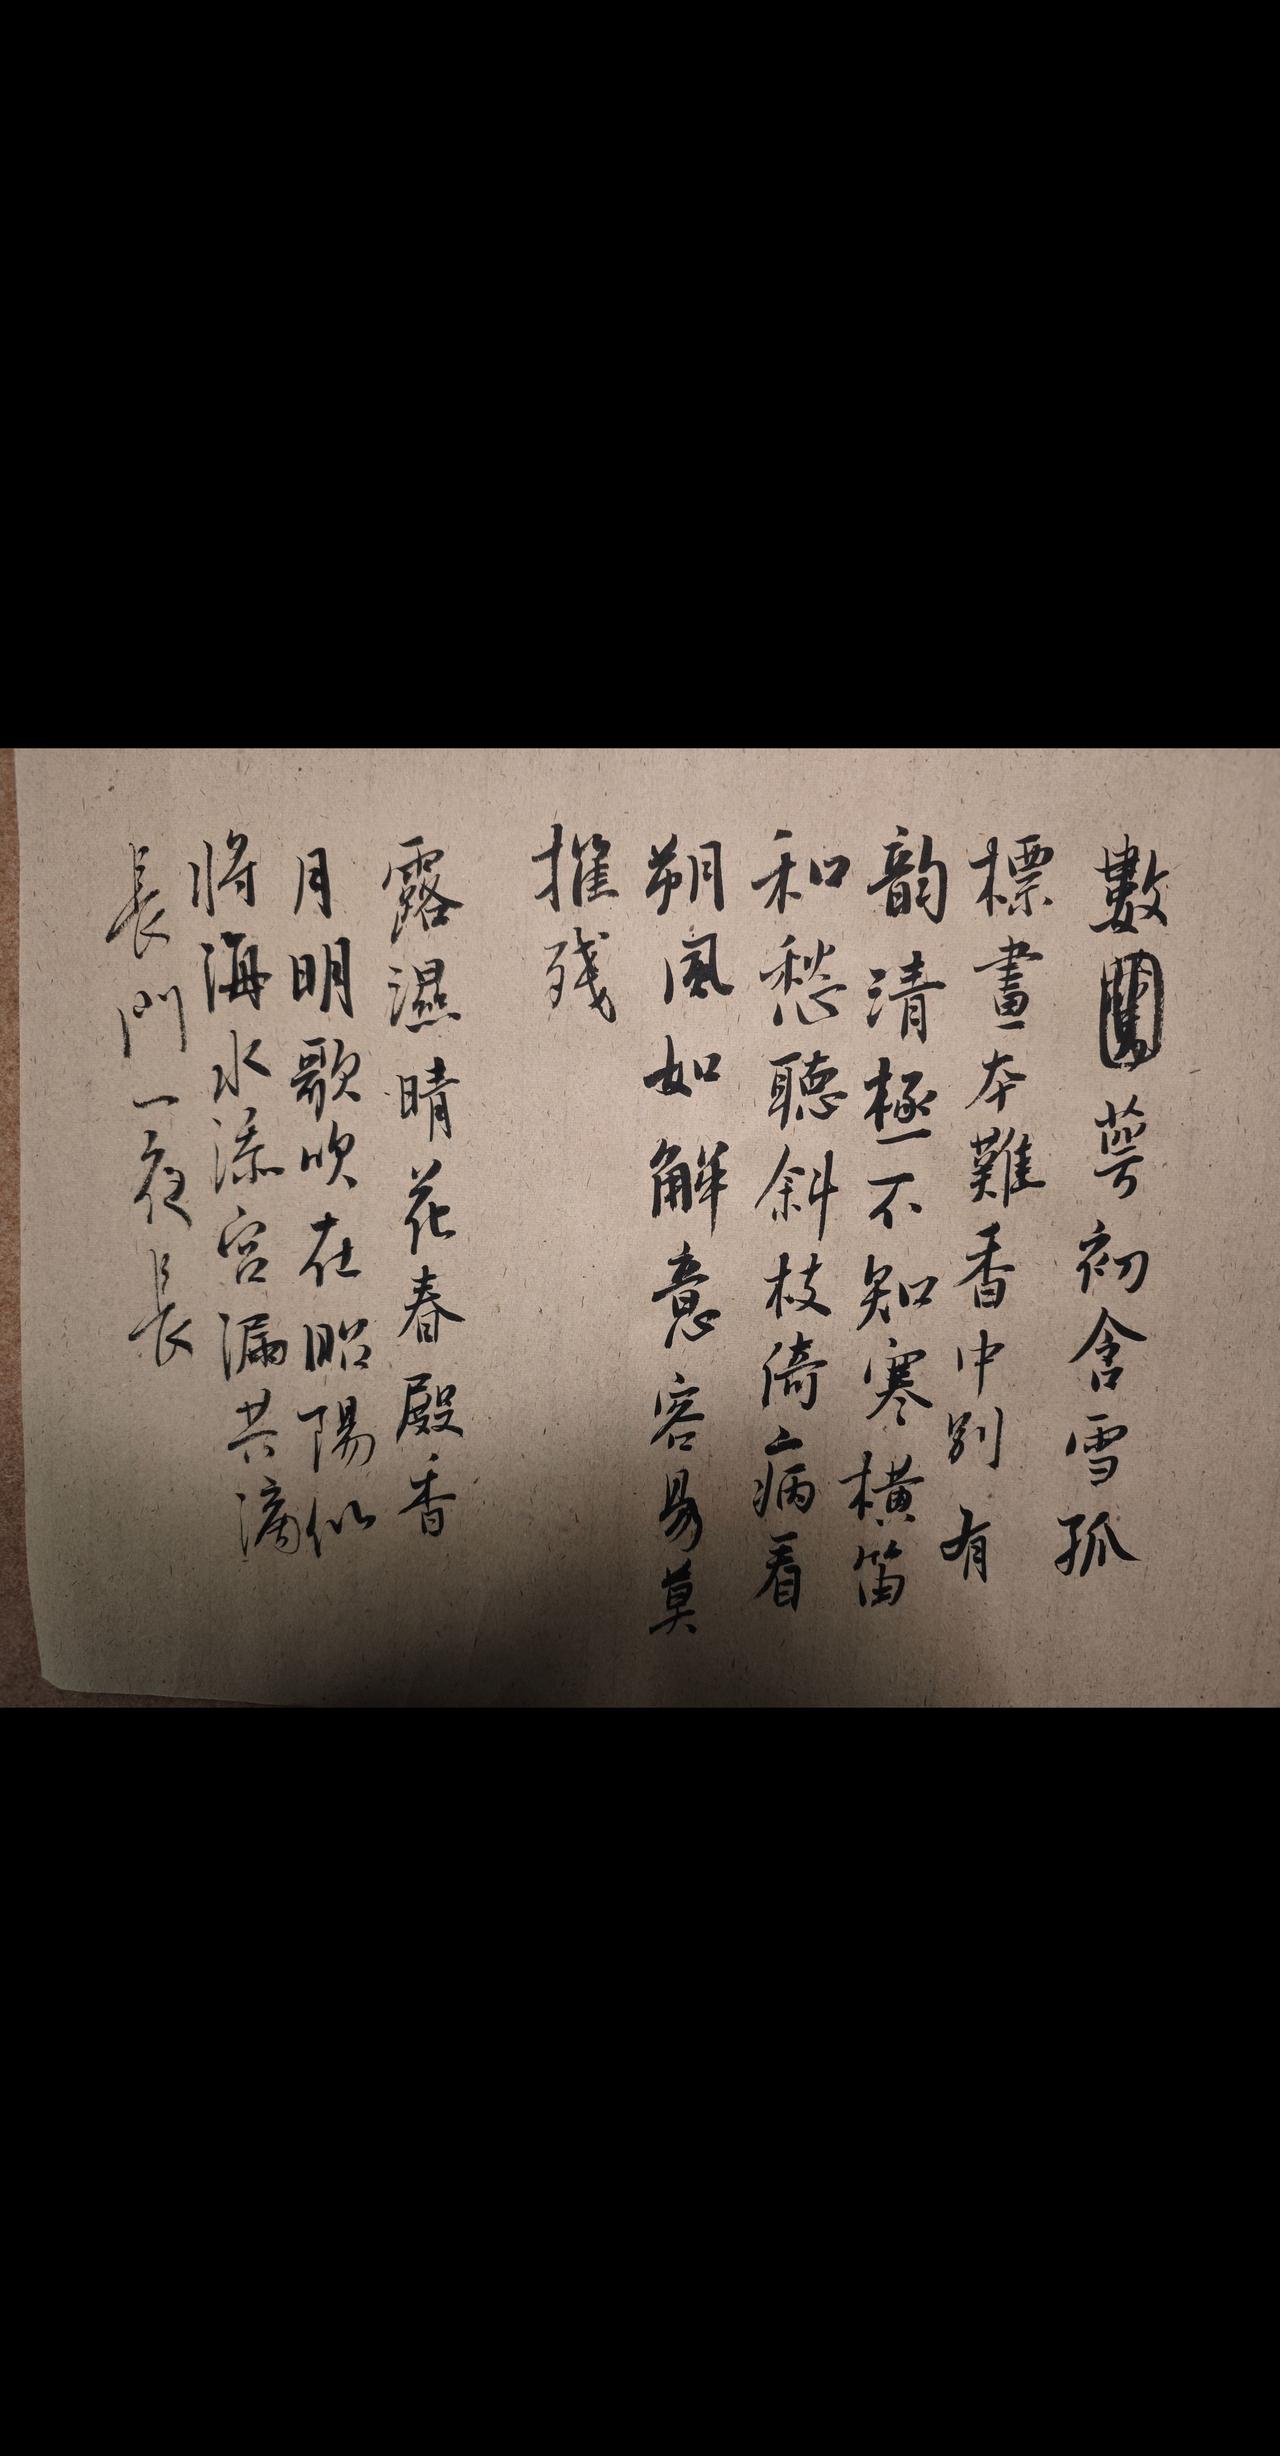 數萼初含雪孤
標畫本難香中別有
韵清極不知寒橫笛
和愁聽斜枝倚病看
朔風如解意容易莫
摧残
露濕晴花春殿香
月明歌吹在昭陽似
將海水添宮漏共滴
長門一夜長